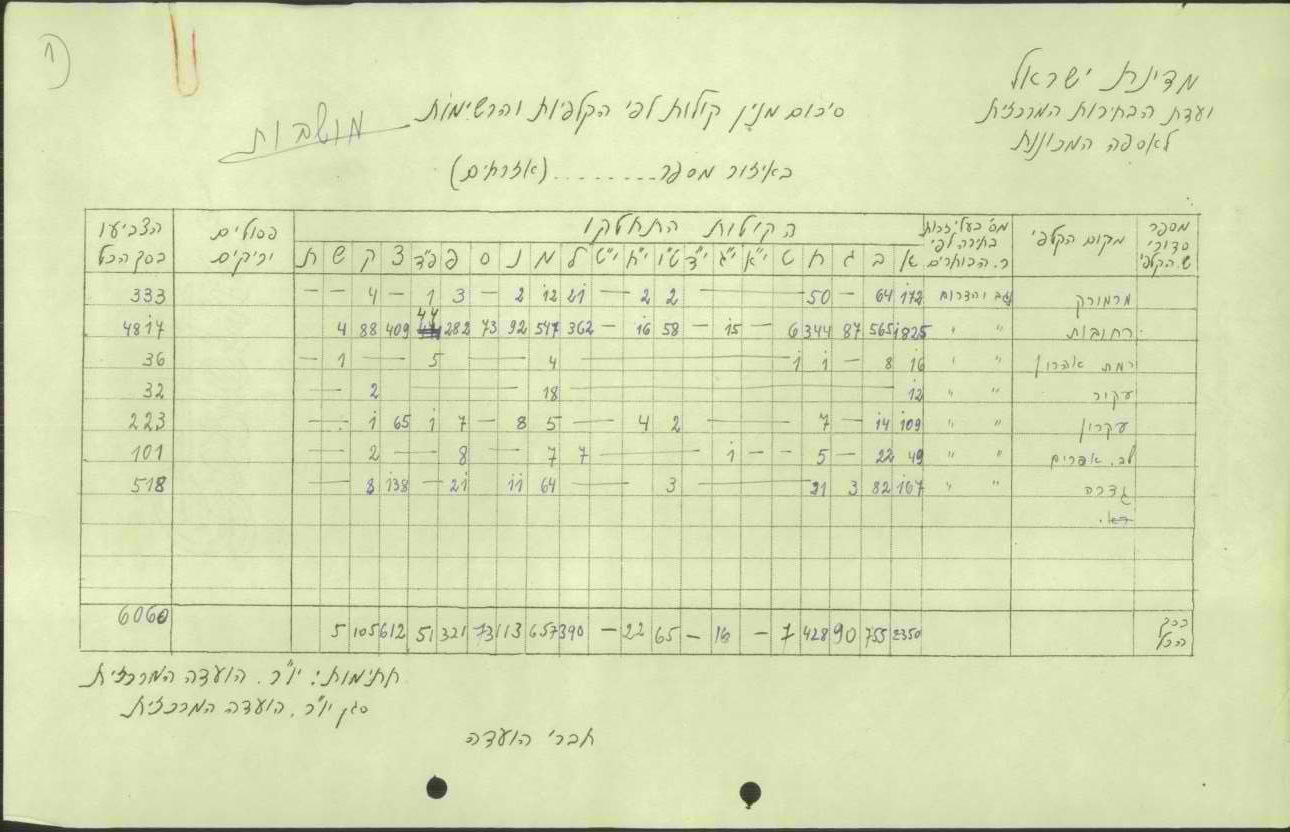 1)
מדינת ישראל
ועדת הבחירות המרכזית
לאספה המכוננת
סיכום מנין קולות לפי הקלפיות והרשימות
מושבות
באיזור מספר.........(אזרחים)
מספר סדורי ש.הקלפי | מקום הקלפי | מס' בעלי זכות בחירה לפי ר. הבוחרים | הקולות התחלקו | פסולים וריקים | הצביעו בסך הכל
א ב ג ח ט י"א י"ג י"ד ט"ו י"ח י"ט ל מ נ ס פ פ"ד צ ק ש ת
מרמורק 172 64 — 50 — 2 2 21 12 2 — 3 1 — 4 — — 333
רחובות " " 1825 565 87 344 6 — 15 — 58 16 — 362 547 92 73 282 44 409 88 4 4817
רמת אהרון " " 16 8 — 1 1 — 4 — 5 — 1 — 36
עקיר " " 12 — 18 — 2 — 32
עקרון " " 109 14 — 7 — 2 4 — 5 8 — 7 1 65 1 — 223
" " 49 22 — 5 — — 1 — 7 7 — 8 — 2 — 101
גדרה " " 167 82 3 21 — 3 — 64 11 — 21 — 138 8 — 518
בסך הכל 2350 755 90 428 7 — 16 — 65 22 — 390 657 113 73 321 51 612 105 5 6060
חתימות: יו"ר. הועדה המרכזית
סגן יו"ר. הועדה המרכזית
חברי הועדה